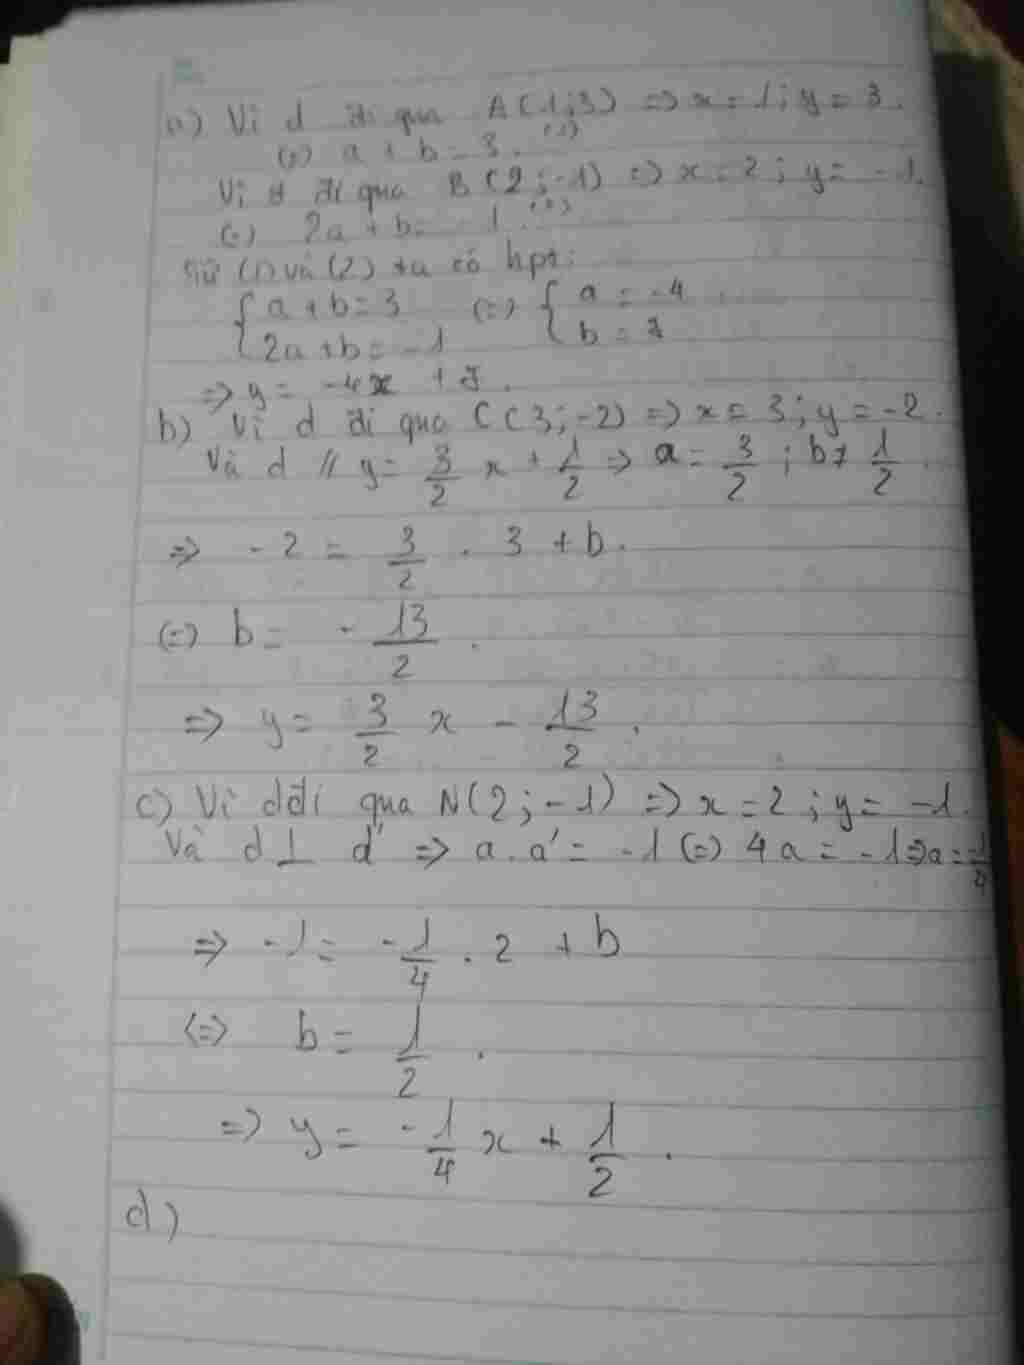 a) Vì d đi qua A(1;3) => x = 1; y = 3.
(=) a + b = 3. (1)
Vì d đi qua B(2;-1) => x = 2; y = -1.
(=) 2a + b = -1. (2)
Từ (1) và (2) ta có hpt:
{ a + b = 3 (=) { a = -4
{ 2a + b = -1 { b = 7
=> y = -4x + 7.
b) Vì d đi qua C(3;-2) => x = 3; y = -2.
Và d // y = 3/2 x + 1/2 => a = 3/2; b ≠ 1/2.
=> -2 = 3/2 . 3 + b.
(=) b = -13/2.
=> y = 3/2 x - 13/2.
c) Vì d đi qua N(2;-1) => x = 2; y = -1.
Và d ⊥ d' => a.a' = -1 (=) 4a = -1 => a = -1/4
=> -1 = -1/4 . 2 + b
(=) b = 1/2.
=> y = -1/4 x + 1/2.
d)